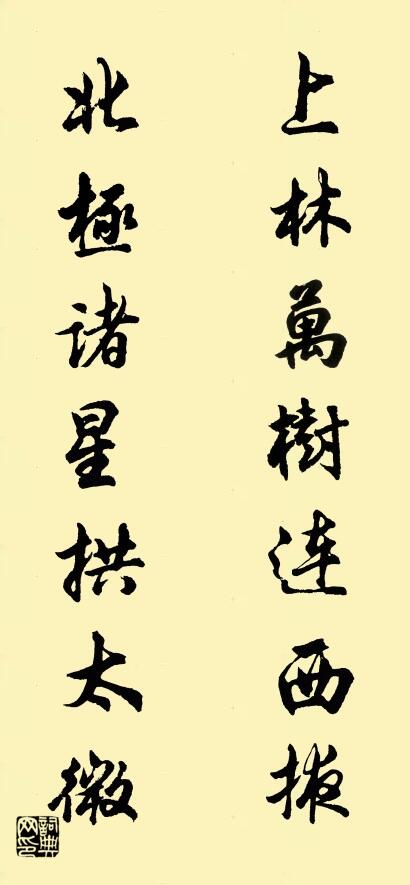 上林萬樹連西掖
北極諸星拱太微
詞典網印